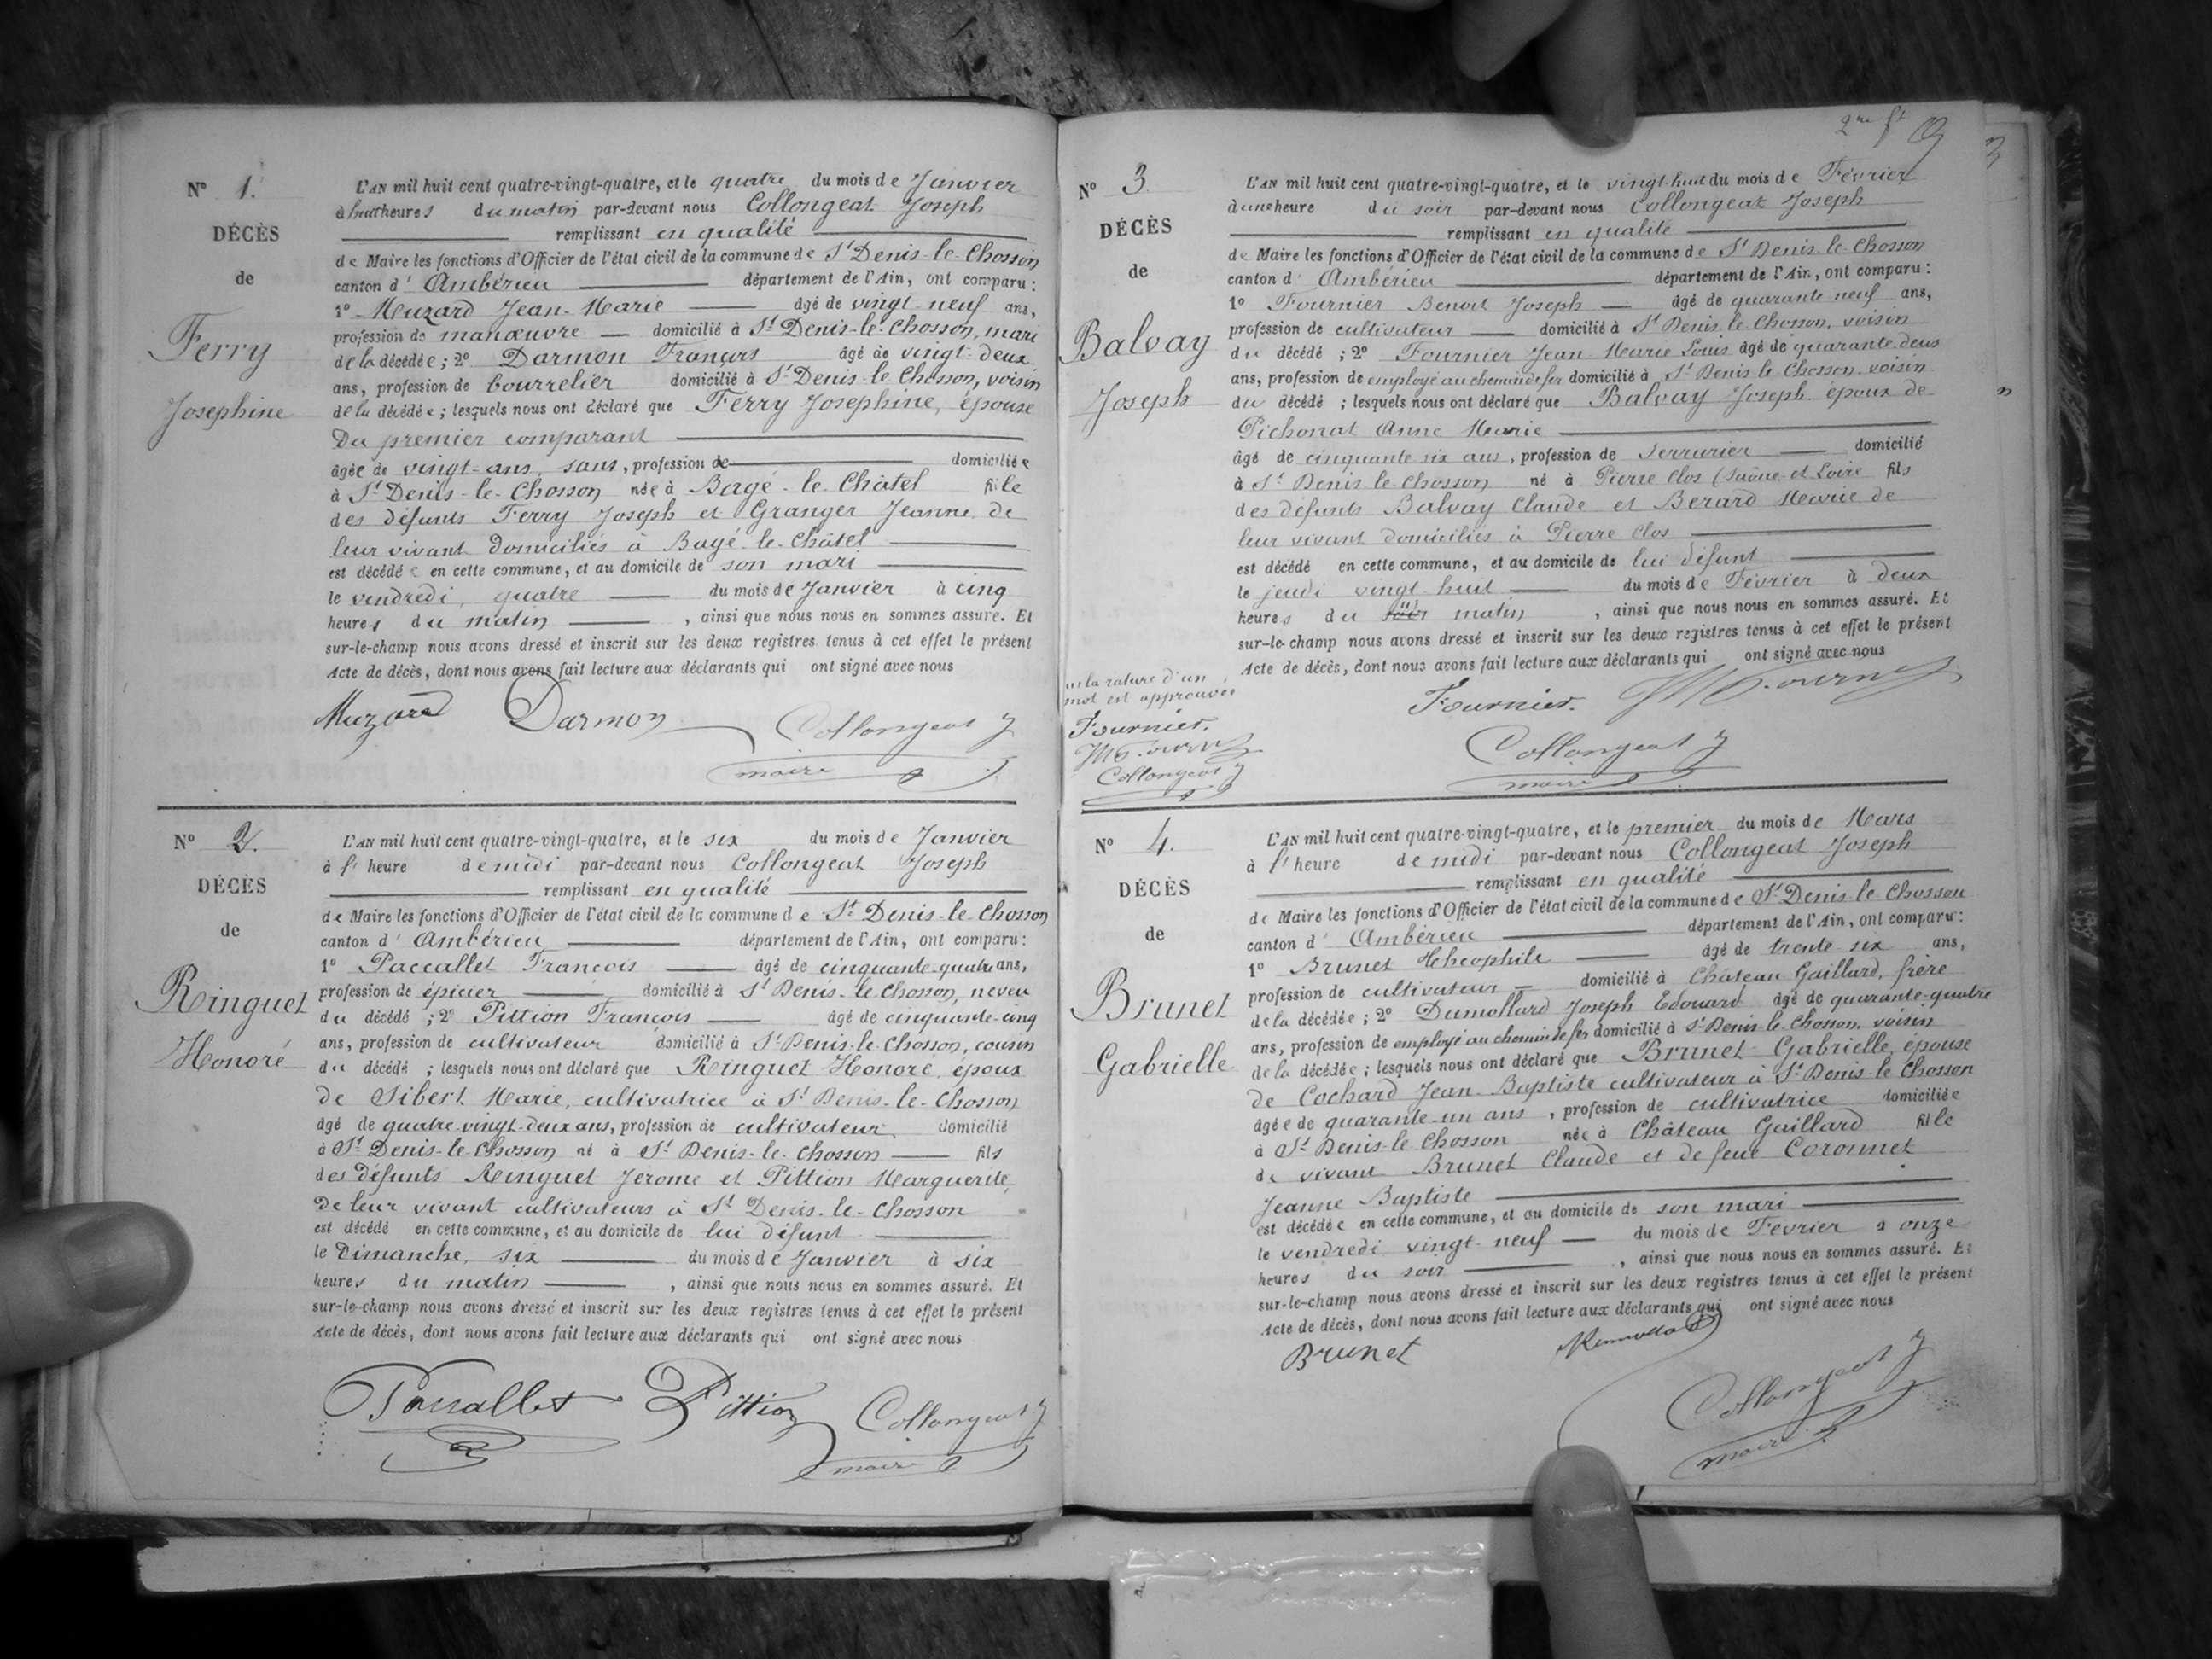 N° 1.
DÉCÈS
de
Ferry
Josephine
L'AN mil huit cent quatre-vingt-quatre, et le quatre du mois de Janvier
à huit heures du matin par-devant nous Collongeat Joseph
remplissant en qualité
de Maire les fonctions d'Officier de l'état civil de la commune de St Denis-le-Chosson
canton d' Ambérieu département de l'Ain, ont comparu :
1° Muzard Jean-Marie âgé de vingt-neuf ans,
profession de manœuvre domicilié à St Denis-le-Chosson, mari
de la décédée ; 2° Darmon François âgé de vingt-deux
ans, profession de bourrelier domicilié à St Denis-le-Chosson, voisin
de la décédée ; lesquels nous ont déclaré que Ferry Josephine, épouse
Du premier comparant
âgée de vingt-ans, sans, profession de domiciliée
à St Denis-le-Chosson née à Bagé-le-Châtel fille
des défunts Ferry Joseph et Granger Jeanne de
leur vivant domiciliés à Bagé-le-Châtel
est décédée en cette commune, et au domicile de son mari
le vendredi, quatre du mois de Janvier à cinq
heures du matin , ainsi que nous nous en sommes assuré. Et
sur-le-champ nous avons dressé et inscrit sur les deux registres tenus à cet effet le présent
Acte de décès, dont nous avons fait lecture aux déclarants qui ont signé avec nous
Muzard Darmon Collongeat J
maire
N° 2.
DÉCÈS
de
Ringuet
Honoré
L'AN mil huit cent quatre-vingt-quatre, et le six du mois de Janvier
à l' heure de midi par-devant nous Collongeat Joseph
remplissant en qualité
de Maire les fonctions d'Officier de l'état civil de la commune de St Denis-le-Chosson
canton d' Ambérieu département de l'Ain, ont comparu :
1° Paccallet François âgé de cinquante-quatre ans,
profession de épicier domicilié à St Denis-le-Chosson, neveu
du décédé ; 2° Pittion François âgé de cinquante-cinq
ans, profession de cultivateur domicilié à St Denis-le-Chosson, cousin
du décédé ; lesquels nous ont déclaré que Ringuet Honoré, époux
de Sibert Marie, cultivatrice à St Denis-le-Chosson
âgé de quatre-vingt-deux ans, profession de cultivateur domicilié
à St Denis-le-Chosson né à St Denis-le-Chosson fils
des défunts Ringuet Jérome et Pittion Marguerite,
De leur vivant cultivateurs à St Denis-le-Chosson
est décédé en cette commune, et au domicile de lui défunt
le Dimanche, six du mois de Janvier à six
heures du matin , ainsi que nous nous en sommes assuré. Et
sur-le-champ nous avons dressé et inscrit sur les deux registres tenus à cet effet le présent
Acte de décès, dont nous avons fait lecture aux déclarants qui ont signé avec nous
Paccallet Pittion Collongeat J
maire
3
N° 3
DÉCÈS
de
Balvay
Joseph
L'AN mil huit cent quatre-vingt-quatre, et le vingt-huit du mois de Février
à une heure du soir par-devant nous Collongeat Joseph
remplissant en qualité
de Maire les fonctions d'Officier de l'état civil de la commune de St Denis-le-Chosson
canton d' Ambérieu département de l'Ain, ont comparu :
1° Fournier Benoit Joseph âgé de quarante-neuf ans,
profession de cultivateur domicilié à St Denis-le-Chosson, voisin
du décédé ; 2° Fournier Jean-Marie Louis âgé de quarante-deux
ans, profession de employé au chemin de fer domicilié à St Denis-le-Chosson voisin
du décédé ; lesquels nous ont déclaré que Balvay Joseph époux de
Pichonat Anne Marie
âgé de cinquante-six ans, profession de serrurier domicilié
à St Denis-le-Chosson né à Pierre Clos (Saône-et-Loire fils
des défunts Balvay Claude et Berard Marie de
leur vivant domiciliés à Pierre Clos
est décédé en cette commune, et au domicile de lui défunt
le jeudi vingt-huit du mois de Février à deux
heures du soir matin , ainsi que nous nous en sommes assuré. Et
sur-le-champ nous avons dressé et inscrit sur les deux registres tenus à cet effet le présent
Acte de décès, dont nous avons fait lecture aux déclarants qui ont signé avec nous
la rature d'un
mot est approuvée
Fournier.
Collongeat J
Fournier.
Collongeat J
maire
N° 4.
DÉCÈS
de
Brunet
Gabrielle
L'AN mil huit cent quatre-vingt-quatre, et le premier du mois de Mars
à l' heure de midi par-devant nous Collongeat Joseph
remplissant en qualité
de Maire les fonctions d'Officier de l'état civil de la commune de St Denis-le-Chosson
canton d' Ambérieu département de l'Ain, ont comparu :
1° Brunet Théophile âgé de trente-six ans,
profession de cultivateur domicilié à Château Gaillard, frère
de la décédée ; 2° Dumollard Joseph Edouard âgé de quarante-quatre
ans, profession de employé au chemin de fer domicilié à St Denis-le-Chosson, voisin
de la décédée ; lesquels nous ont déclaré que Brunet Gabrielle, épouse
de Cochard Jean-Baptiste cultivateur à St Denis-le-Chosson
âgée de quarante-un ans , profession de cultivatrice domiciliée
à St Denis-le-Chosson née à Château Gaillard fille
de vivant Brunet Claude et de feue Coronnet
Jeanne Baptiste
est décédée en cette commune, et au domicile de son mari
le vendredi vingt-neuf du mois de Février à onze
heures du soir , ainsi que nous nous en sommes assuré. Et
sur-le-champ nous avons dressé et inscrit sur les deux registres tenus à cet effet le présent
Acte de décès, dont nous avons fait lecture aux déclarants qui ont signé avec nous
Brunet
Collongeat J
maire